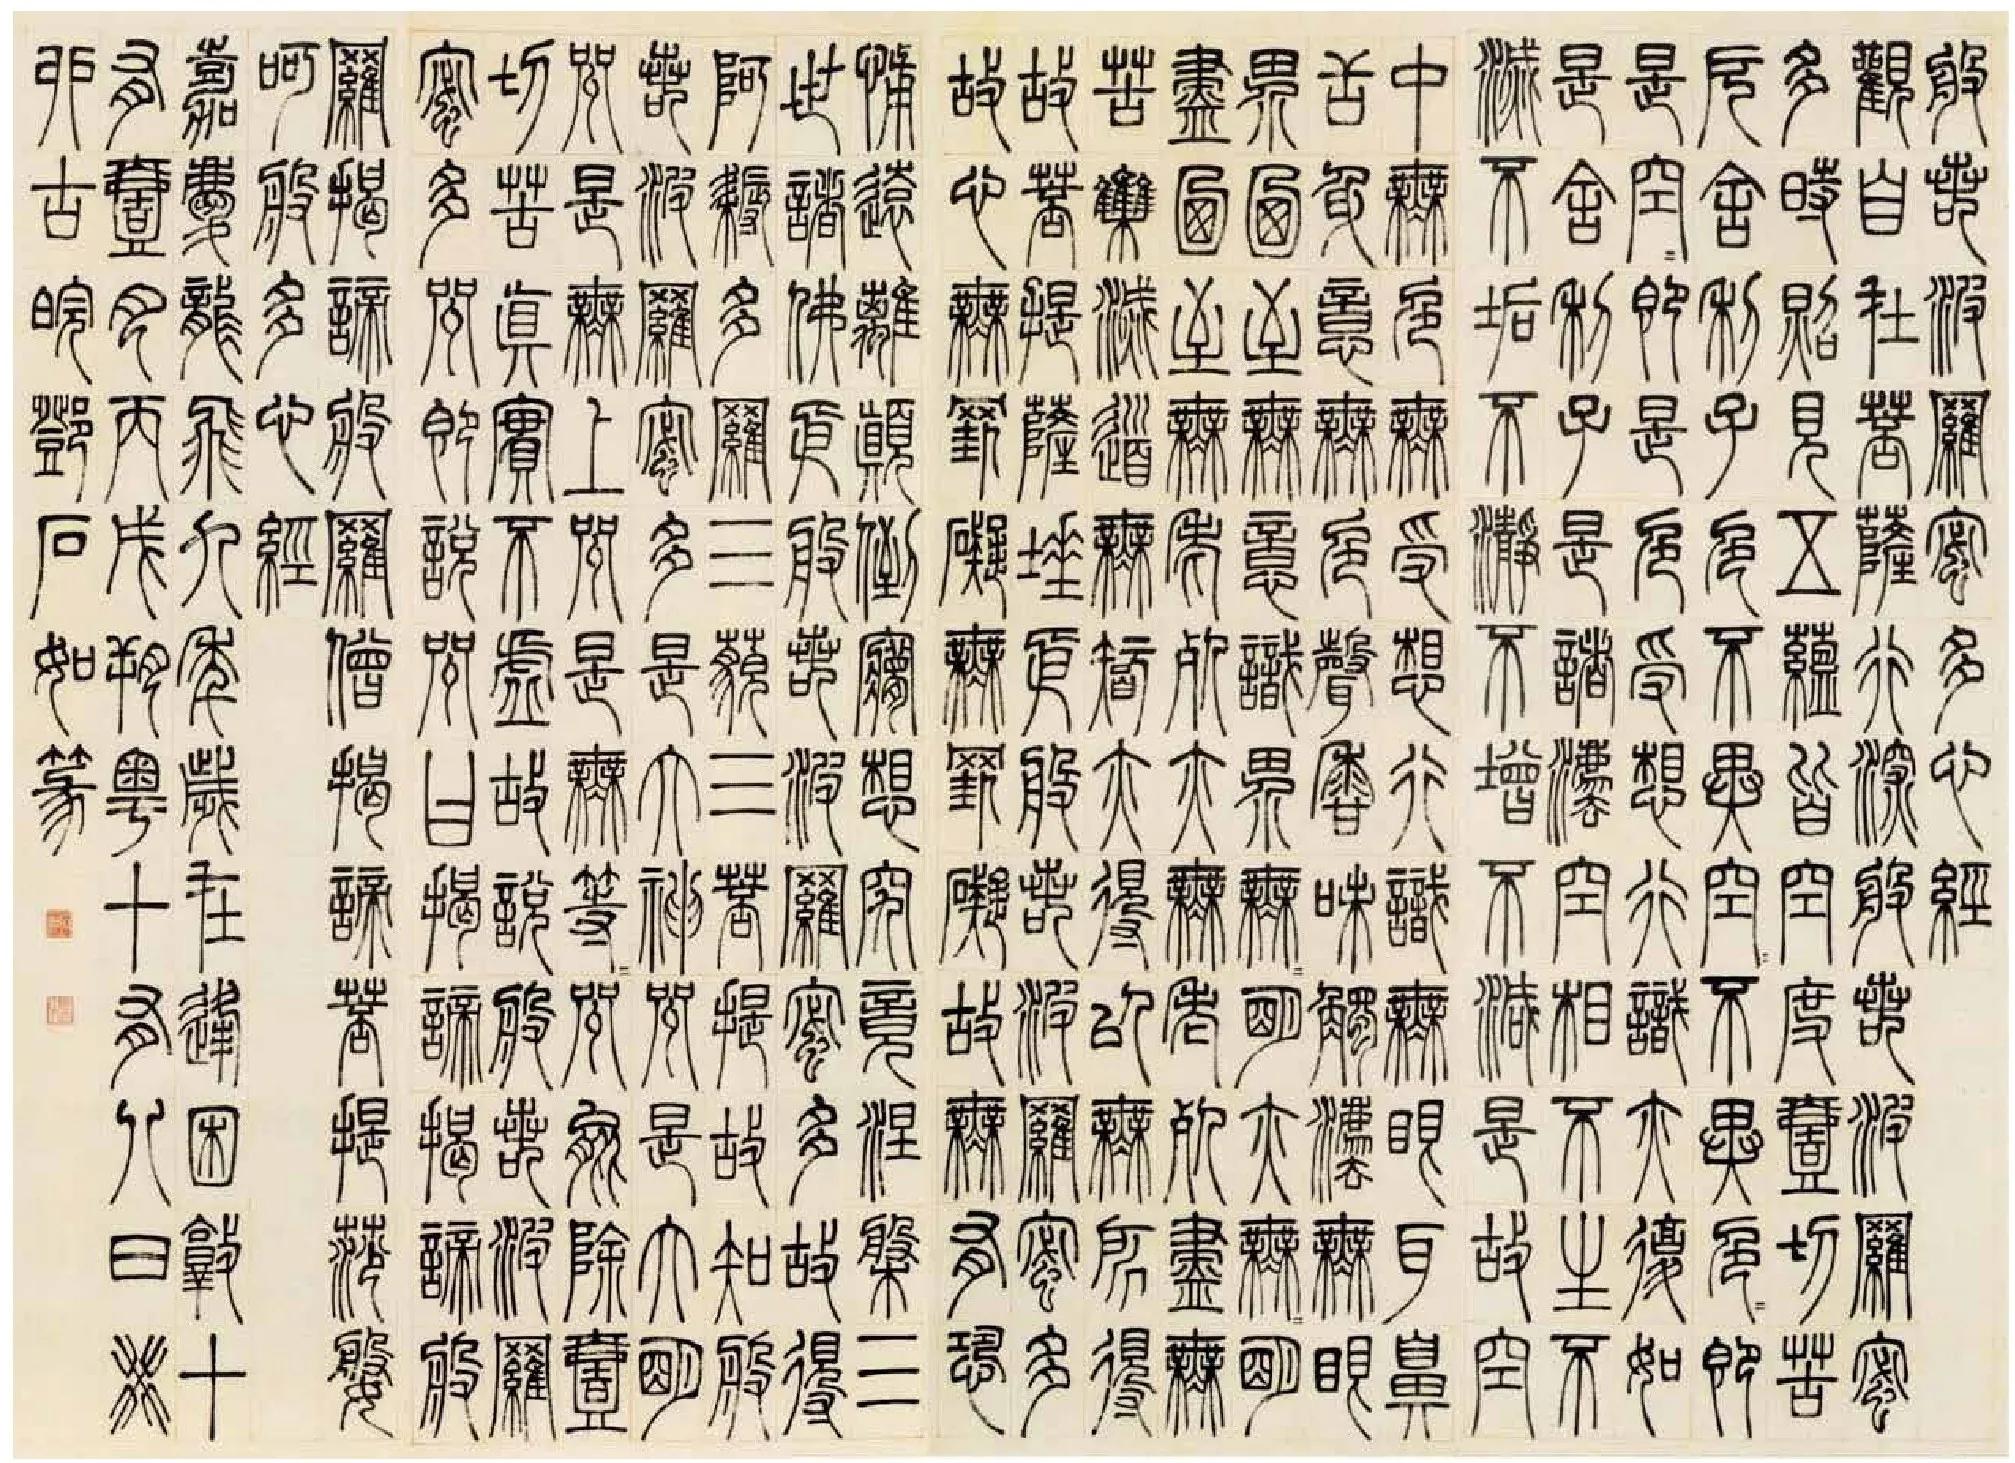 般若波羅蜜多心經
觀自在菩薩行深般若波羅蜜
多時照見五蘊皆空度壹切苦
厄舍利子色不異空=不異色=即
是空=即是色受想行識亦復如
是舍利子是諸法空相不生不
滅不垢不瀞不增不減是故空
中無色無受想行識無眼耳鼻
舌身意無色聲香味觸法無眼
界迺至無意識界無=明亦無=明
盡迺至無老死亦無老死盡無
苦雧滅道無智亦得以無所得
故菩提薩埵依般若波羅蜜多
故心無罣礙無罣礙故無有恐
怖遠離顛倒夢想究竟涅槃三
世諸佛依般若波羅蜜多故得
阿耨多羅三藐三菩提故知般
若波羅蜜多是大神咒是大明
咒是無上咒是無等=咒能除壹
切苦真實不虛故說般若波羅
蜜多咒即說咒曰揭諦揭諦般
羅揭諦般羅僧揭諦菩提莎媻
呵般多心經
嘉慶龍飛九年歲在逢困敦十
有壹月丙戌朔粵十有八日癸
卯古皖鄧石如篆